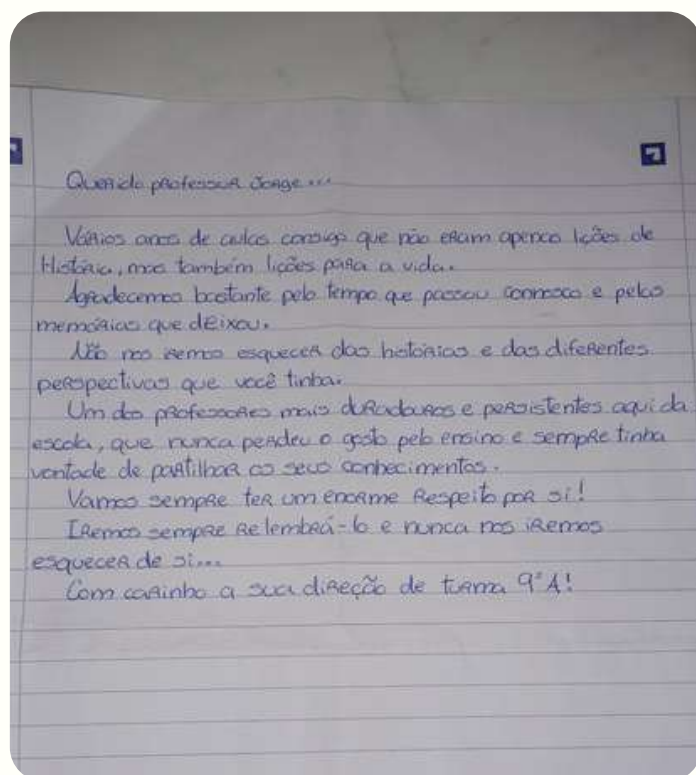 Querido professor Jorge...
Vários anos de aulas consigo que não eram apenas lições de
História, mas também lições para a vida.
Agradecemos bastante pelo tempo que passou connosco e pelas
memórias que deixou.
Não nos iremos esquecer das histórias e das diferentes
perspectivas que você tinha.
Um dos professores mais duradouros e persistentes aqui da
escola, que nunca perdeu o gosto pelo ensino e sempre tinha
vontade de partilhar os seus conhecimentos.
Vamos sempre ter um enorme respeito por si!
Iremos sempre relembrá-lo e nunca nos iremos
esquecer de si...
Com carinho a sua direção de turma 9°A!